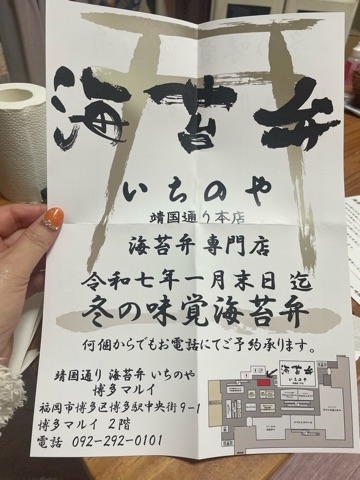 海苔弁
いちのや
靖国通り本店
海苔弁専門店
令和七年一月末日迄
冬の味覚海苔弁
何個からでもお電話にてご予約承ります。
靖国通り 海苔弁 いちのや
博多マルイ
福岡市博多区博多駅中央街9-1
博多マルイ 2階
電話 092-292-0101
海苔弁
いちのや